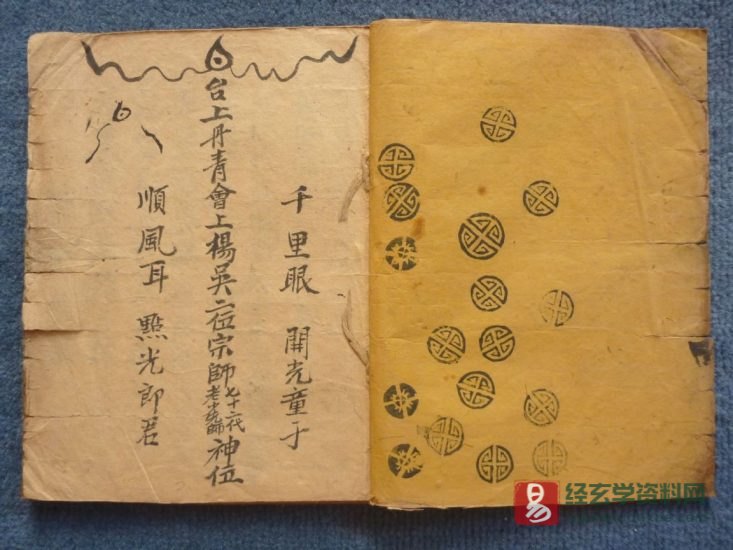 千里眼 開光童子
台上丹青會上楊吳二位宗師七十二代老少先師神位
順風耳 點光郎君
易 经玄学资料网